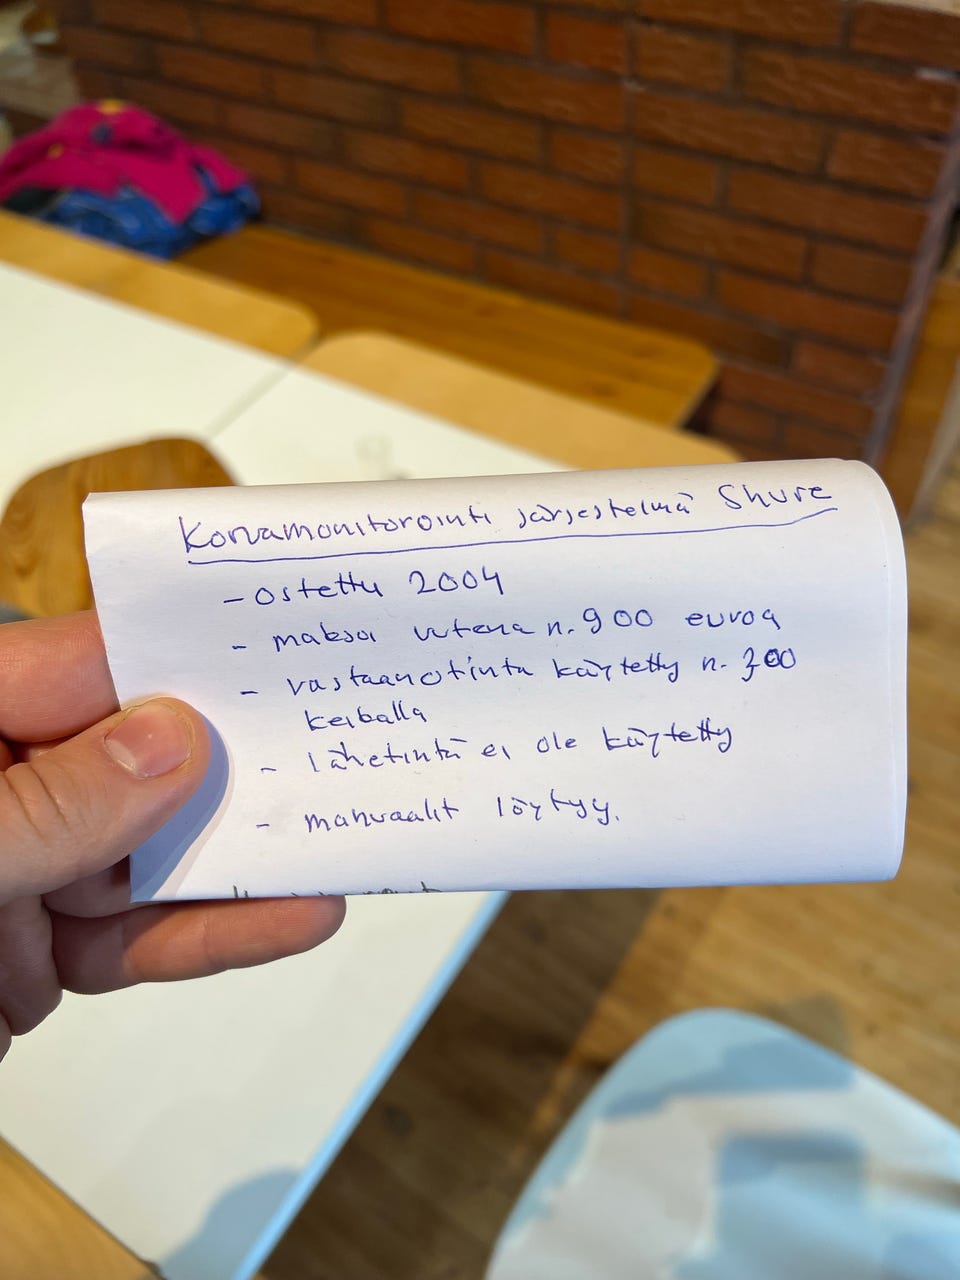 Korvamonitorointi järjestelmä Shure
- ostettu 2004
- maksoi uutena n. 900 euroa
- vastaanotinta käytetty n. 300
keikalla
- lähetintä ei ole käytetty
- manuaalit löytyy.